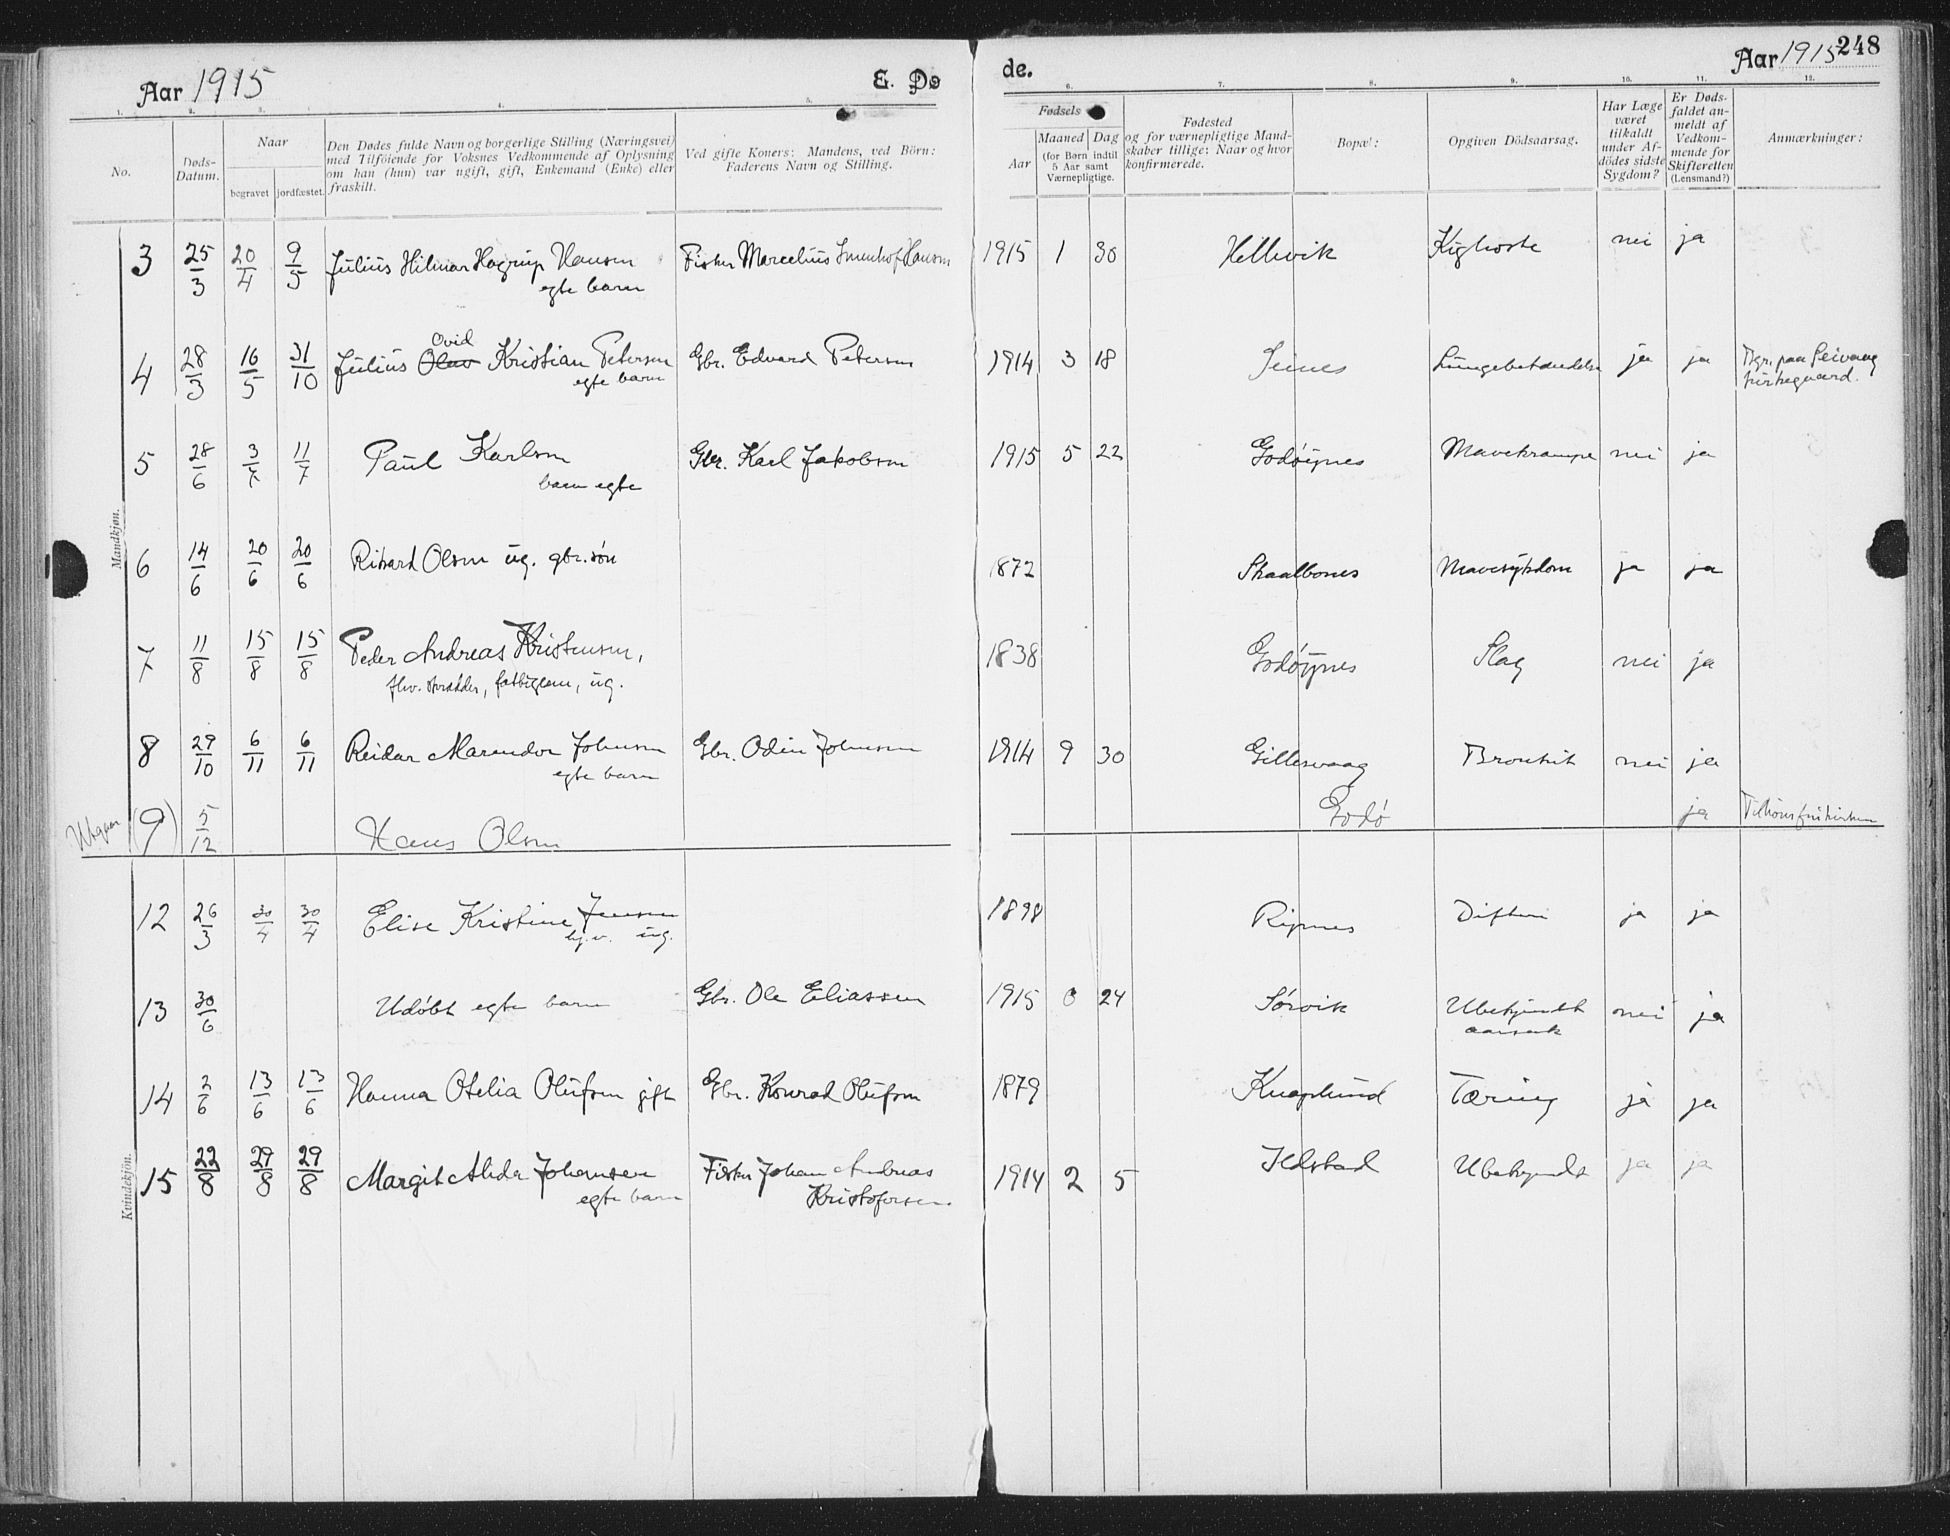 Aar 1915
E. Dø
de.
Aar 1915
248
1. 2. 3. 4. 5. 6. 7. 8. 9. 10. 11. 12.
No.
Døds-
Datum.
Naar
begravet
jordfæstet.
Den Dødes fulde Navn og borgerlige Stilling (Næringsvei)
med Tilföiende for Voksnes Vedkommende af Oplysning
om han (hun) var ugift, gift, Enkemand (Enke) eller
fraskilt.
Ved gifte Koners: Mandens, ved Börn:
Faderens Navn og Stilling.
Fødsels
Aar
Maaned
Dag
(for Børn indtil
5 Aar samt
Værnepligtige.
Fødested
og for værnepligtige Mand-
skaber tillige: Naar og hvor
konfirmerede.
Bopæl:
Opgiven Dödsaarsag.
Har Læge
været
tilkaldt
under Af-
dödes sidste
Sygdom?
Er Døds-
faldet an-
meldt af
Vedkom-
mende for
Skifteretten
(Lensmand?)
Anmærkninger:
Mandkjøn.
3 25/3 20/4 9/5 Julius Hilmar Hagrup Hansen Fisker Marcelius Hansen 1915 1 30 Hellevik Kighoste nei ja
egte barn
Ovid
4 28/3 16/5 31/10 Julius Olav Kristian Petersen Gbr. Edvard Petersen 1914 3 18 Lungebetændelse ja ja Bgr. paa Seivaag
egte barn kirkegaard.
5 28/6 3/7 11/7 Paul Karlsen Gbr. Karl Jakobsen 1915 5 22 Godøynes Mavekrampe nei ja
barn egte
6 14/6 20/6 20/6 Rikard Olsen ug. gbr. søn 1872 Skaalbones Mavesykdom ja ja
7 11/8 15/8 15/8 Peder Andreas Kristensen, 1838 Godøynes Slag nei ja
fhv. skrædder, fattiglem, ug.
8 29/10 6/11 6/11 Reidar Marendor Johnsen Gbr. Odin Johnsen 1914 9 30 Gillesvaag Bronkit nei ja
egte barn
Utgaar (9) 5/12 Hans Olsen Godø ja Tilhører frikirken
Kvindekjön.
12 26/3 30/4 30/4 Elise Kristine Jensen 1898 Ripnes Difteri ja ja
ug.
13 30/6 Udøbt egte barn Gbr. Ole Eliassen 1915 6 24 Sørvik Ubekjendt nei ja
aarsak
14 2/6 13/6 13/6 Hanna Otelia Olufsen gift Gbr. Konrad Olufsen 1879 Knaplund Tæring ja ja
15 22/8 29/8 29/8 Margit Alida Johansen Fisker Johan Andreas 1914 2 5 Ildstad Ubekjendt ja ja
egte barn Kristofersen